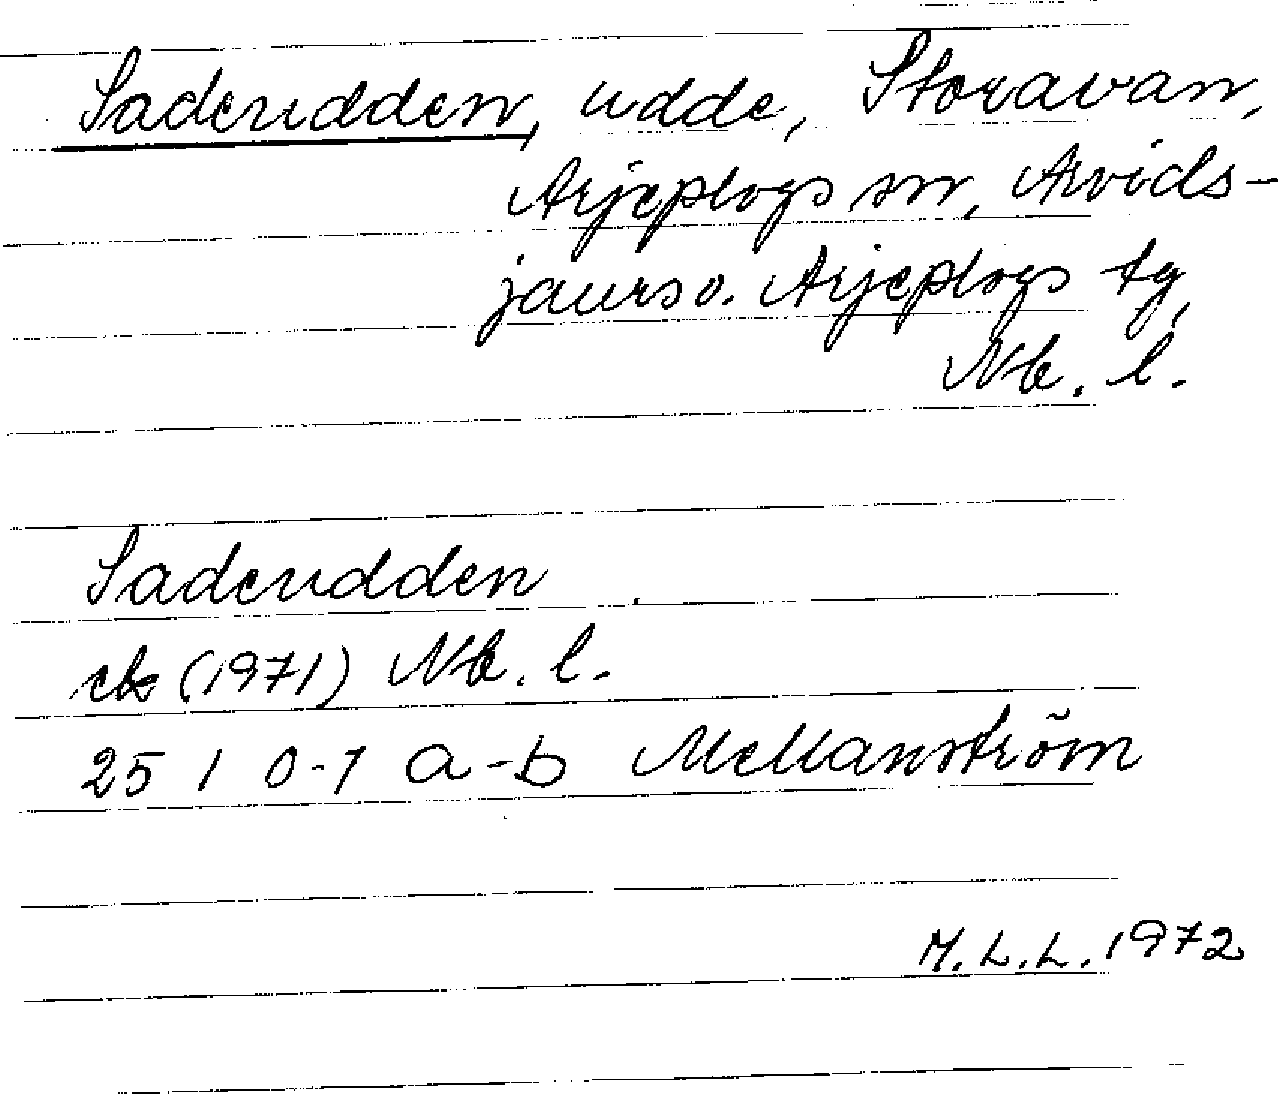 Saderudden, udde, Storavan,
Arjeplogs sn, Arvids-
jaurs o. Arjeplogs tg,
Nb. l.
Saderudden
ek (1971) Nb. l.
25 I 0-1 a-b Mellanström
M.L.L. 1972